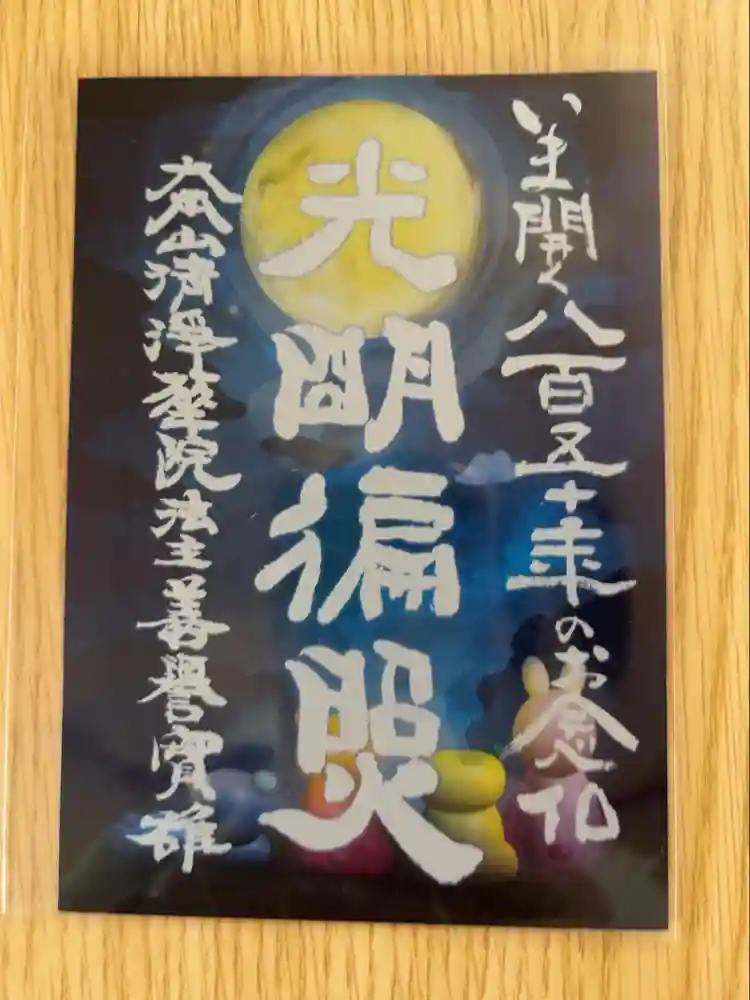 いま開く八百五十年のお念仏
光明徧照
大本山清淨華院法主善譽寶雄